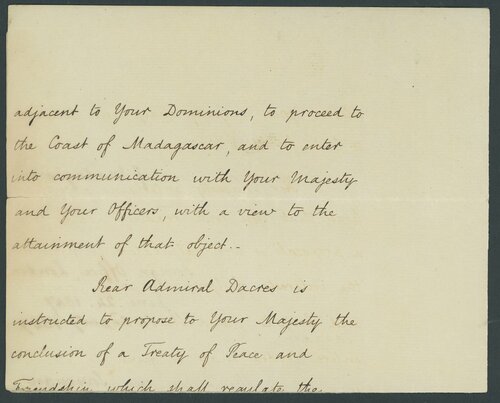 adjacent to Your Dominions, to proceed to
the Coast of Madagascar, and to enter
into communication with Your Majesty
and Your Officers, with a view to the
attainment of that object.-
Rear Admiral Dacres is
instructed to propose to Your Majesty the
conclusion of a Treaty of Peace and
Friendship which shall regulate the